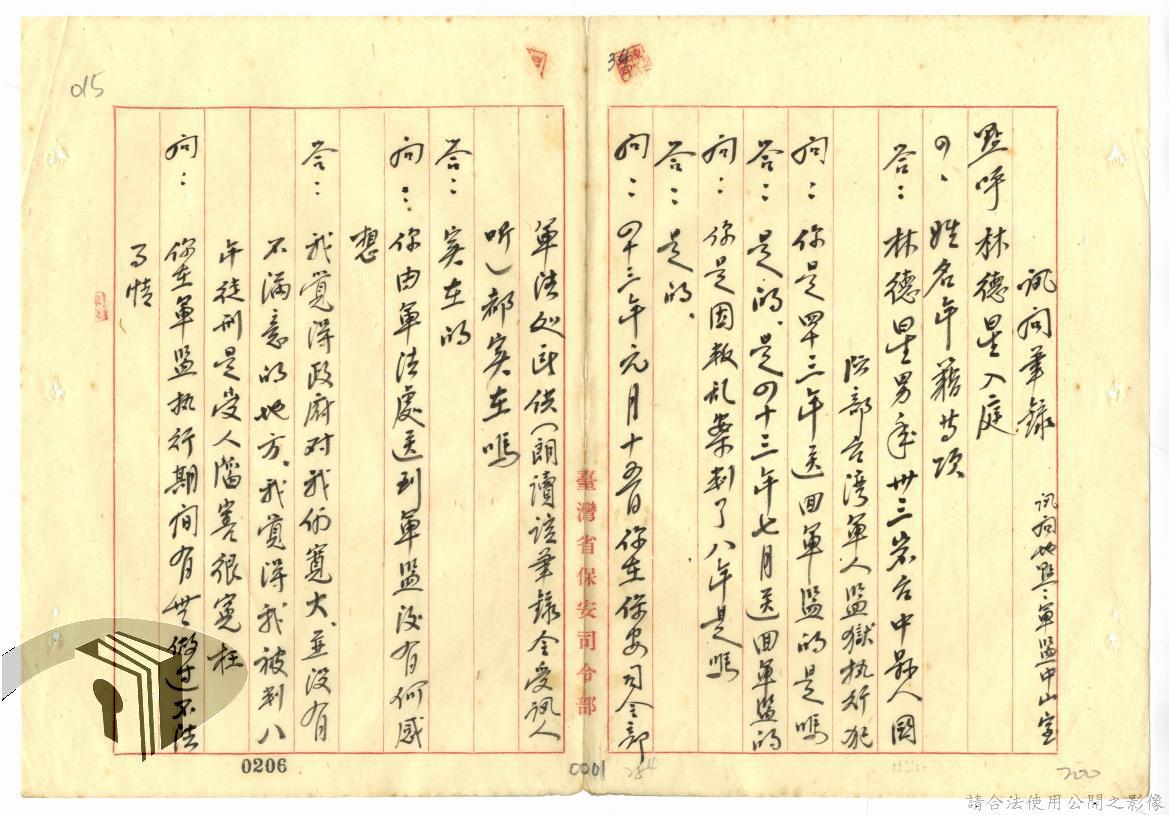 訊問筆錄 訊問地點：軍監中山室
點呼林德星入庭
の、姓名年籍等項
答：林德星男年卅三岁台中縣人國
防部台湾軍人監獄执行犯
问：你是四十三年送回軍監的是嗎
答：是的、是の十三年七月送回軍監的
问：你是因叛乱案判了八年是嗎
答：是的、
问：の十三年元月十五日你在保安司令部
臺灣省保安司令部
軍法处所供（朗讀該筆錄令受訊人
听）都实在嗎
答：实在的
问：你由軍法處送到軍監没有何感
想
答：我覚得政府对我们寬大、並没有
不滿意的地方、我覚得我被判八
年徒刑是受人陷害很冤枉
问：你在軍監执行期间有無做过不法
事情
015
34
0206
0001
284
200
請合法使用公開之影像